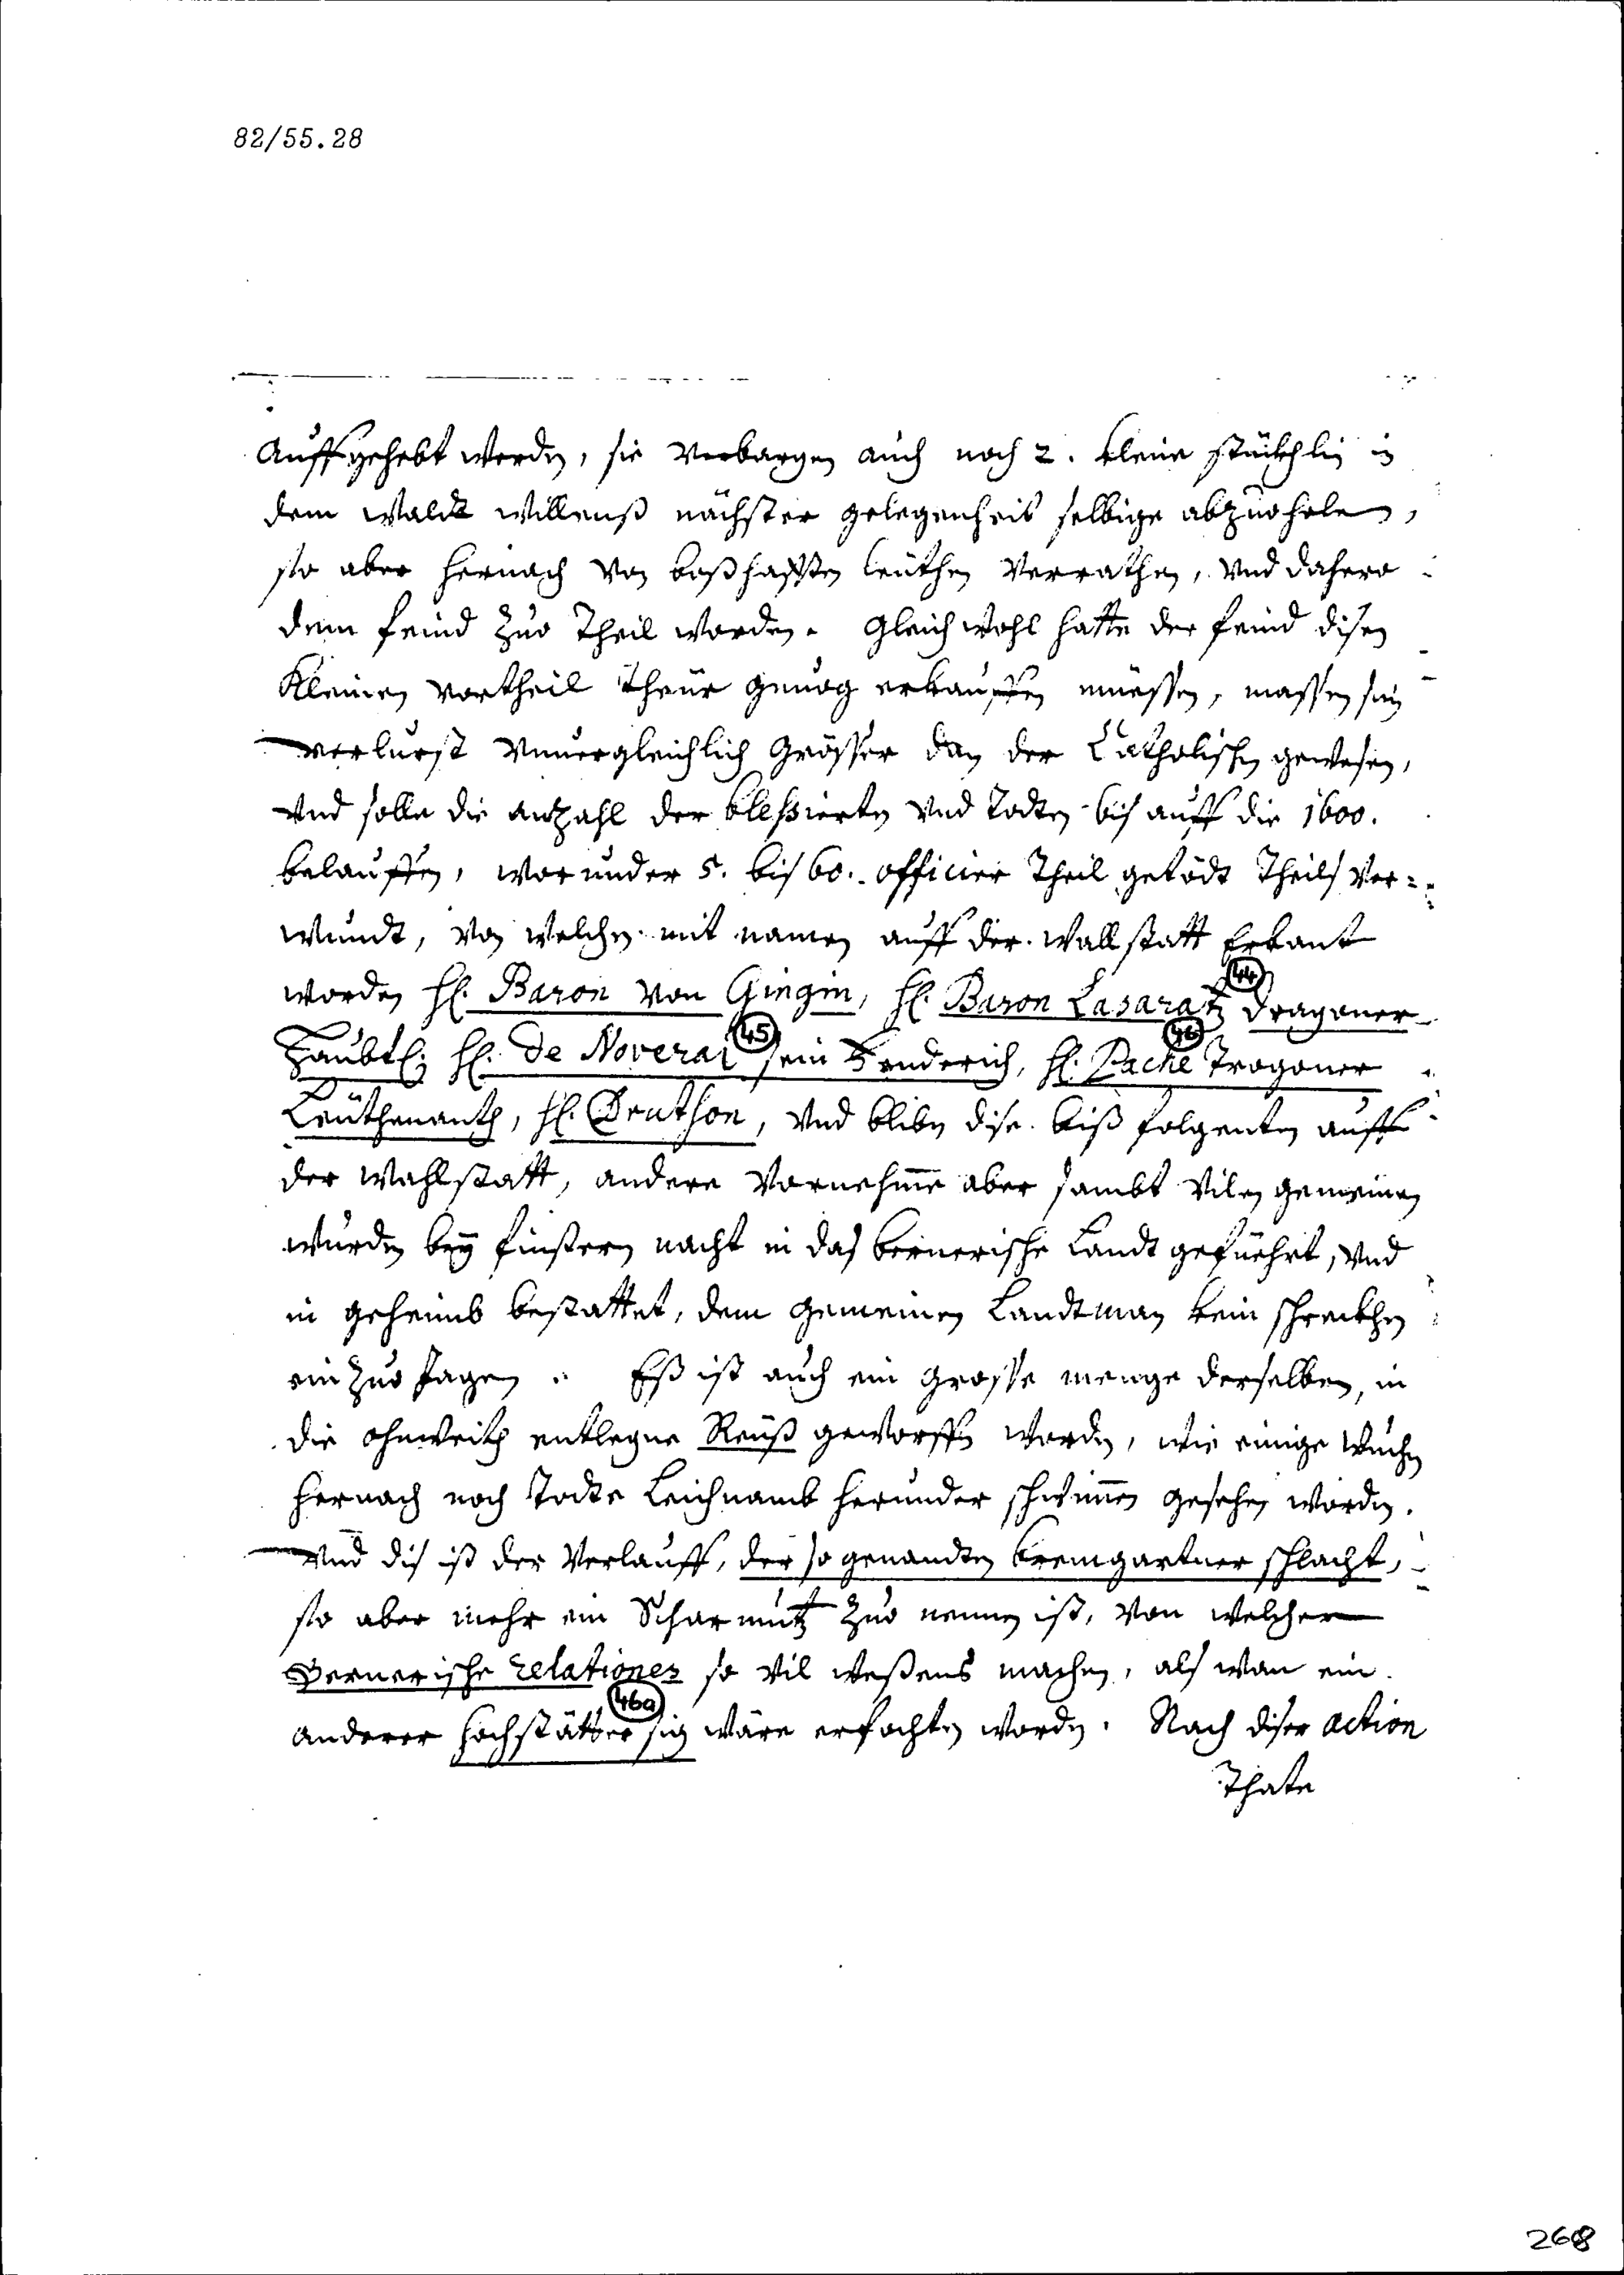 82/55.28
Auffgehebt werden, sie verbargen auch noch 2. kleine stückhlin in
dem Waldt willenß nächster gelegenheit selbige abzuoholen,
so aber hernach von boßhafften leüthen verrathen, und dahero
dem feind zuo theil worden. Gleichwohl hatte der feind disen
Kleinen vortheil theür genuog erkauffen müessen, massen sein
verlurst unvergleichlich grösser dan der Catholischen gewesen,
und solle die anzahl der blessierten und todten bis auff die 1600.
belauffen, worunder 5. bis 60. officier theil getödt theils ver=
wundt, von welchen mit namen auff der wallstatt Erkant
44
worden H. Baron von Gingin, H. Baron Lasaratz dragoner
45 46
Haubtl: H. de Noveral sein Fenderich, H. Pache Tragoner
Leüthenanth, H. Druthon, und bliben dise biß folgenten auff
der Wahlstatt, andere vornehme aber sambt vilen gemeinen
wurden bey finstern nacht in das bernerische Landt geführt, und
in geheimb bestattet, dem gemeinen Landtman kein schreckhen
ein zuo jagen. Eß ist auch ein grosse menge derselben, in
die ohnweith entlegne Reüß geworffen worden, wie einige wuchen
hernach noch todte Leichnamb herunder schwimmen gesehen worden.
Und dis ist der verlauff, der so genandten bremgartner schlacht,
so aber mehr ein Scharmutz zuo nennen ist, von welcher
Bernerische relationes so vil weßens machen, als wan ein
46a
anderer hochstätter sig wäre erfochten worden. Nach diser action
Thate
268